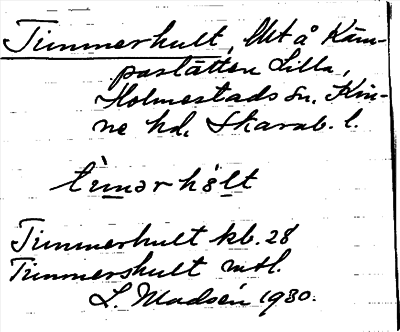 Timmerhult, lht å Käm-
pastätten Lilla,
Holmestads sn. Kin-
ne hd, Skarab. l.
tìmər hɵ̀lt
Timmerhult kb. 28
Timmershult mtl.
L. Madsén 1930.